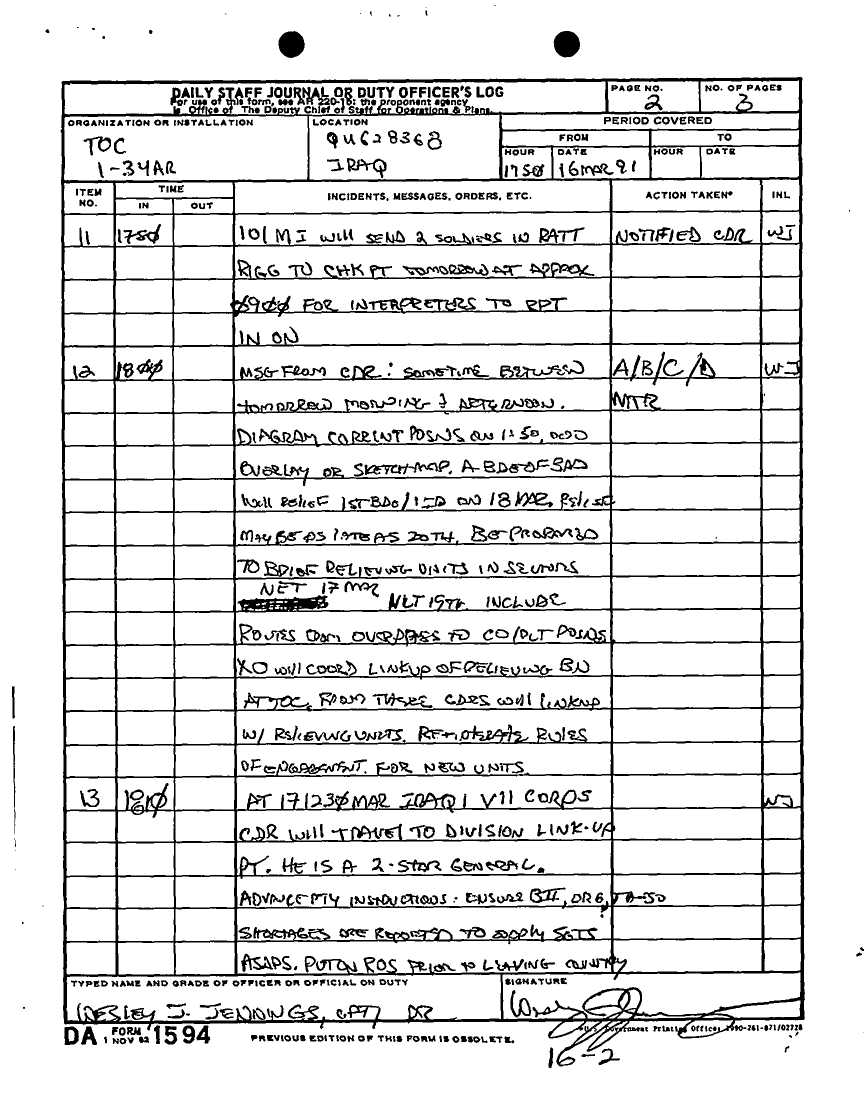 DAILY STAFF JOURNAL OR DUTY OFFICER'S LOG
For use of this form, see AR 220-15; the proponent agency
is Office of The Deputy Chief of Staff for Operations & Plans.
PAGE NO.
2
NO. OF PAGES
3
ORGANIZATION OR INSTALLATION
TOC
1-34AR
LOCATION
QU628368
IRAQ
PERIOD COVERED
FROM
TO
HOUR
DATE
HOUR
DATE
1750
16 MAR 91
ITEM NO.
TIME
IN
OUT
INCIDENTS, MESSAGES, ORDERS, ETC.
ACTION TAKEN*
INL
11 1750 101 MI WILL SEND 2 SOLDIERS IN RATT NOTIFIED CDR WJ
RIGG TO CHKPT TOMORROW AT APPROX
0900 FOR INTERPRETERS TO RPT
IN ON
12 1800 MSG FROM CDR: SOMETIME BETWEEN A/B/C/D WJ
TOMORROW MORNING & AFTERNOON. MTR
DIAGRAM CURRENT POSNS ON 1:50,000
OVERLAY OR SKETCHMAP. A BDE OF 3AD
WILL RELIEF 1ST BDE/1ID ON 18 MAR, RELIEF
MAY BE AS LATE AS 20TH. BE PREPARED
TO BRIEF RELIEVING UNITS IN SECTORS
NET 17 MAR
NLT 19TH INCLUDE
ROUTES FROM OVERPASS TO CO/PLT POSNS
XO WILL COORD LINKUP OF RELIEVING BN
AT TOC, FROM THERE CDRS WILL LINKUP
W/ RELIEVING UNITS. REITERATE RULES
OF ENGAGEMENT FOR NEW UNITS.
13 1810 AT 171230MAR IRAQI VII CORPS WJ
CDR WILL TRAVEL TO DIVISION LINK-UP
PT. HE IS A 2-STAR GENERAL.
ADVANCE PTY INSTRUCTIONS: ENSURE BII, OR6, TA-50
SHORTAGES ARE REPORTED TO SUPPLY SGTS
ASAPS. PUT ON ROS PRIOR TO LEAVING COUNTRY
TYPED NAME AND GRADE OF OFFICER OR OFFICIAL ON DUTY
WESLEY J. JENNINGS, CPT
SIGNATURE
DA FORM 1594
1 NOV 62
PREVIOUS EDITION OF THIS FORM IS OBSOLETE.
*U.S. Government Printing Office: 1990-261-871/02728
16-2